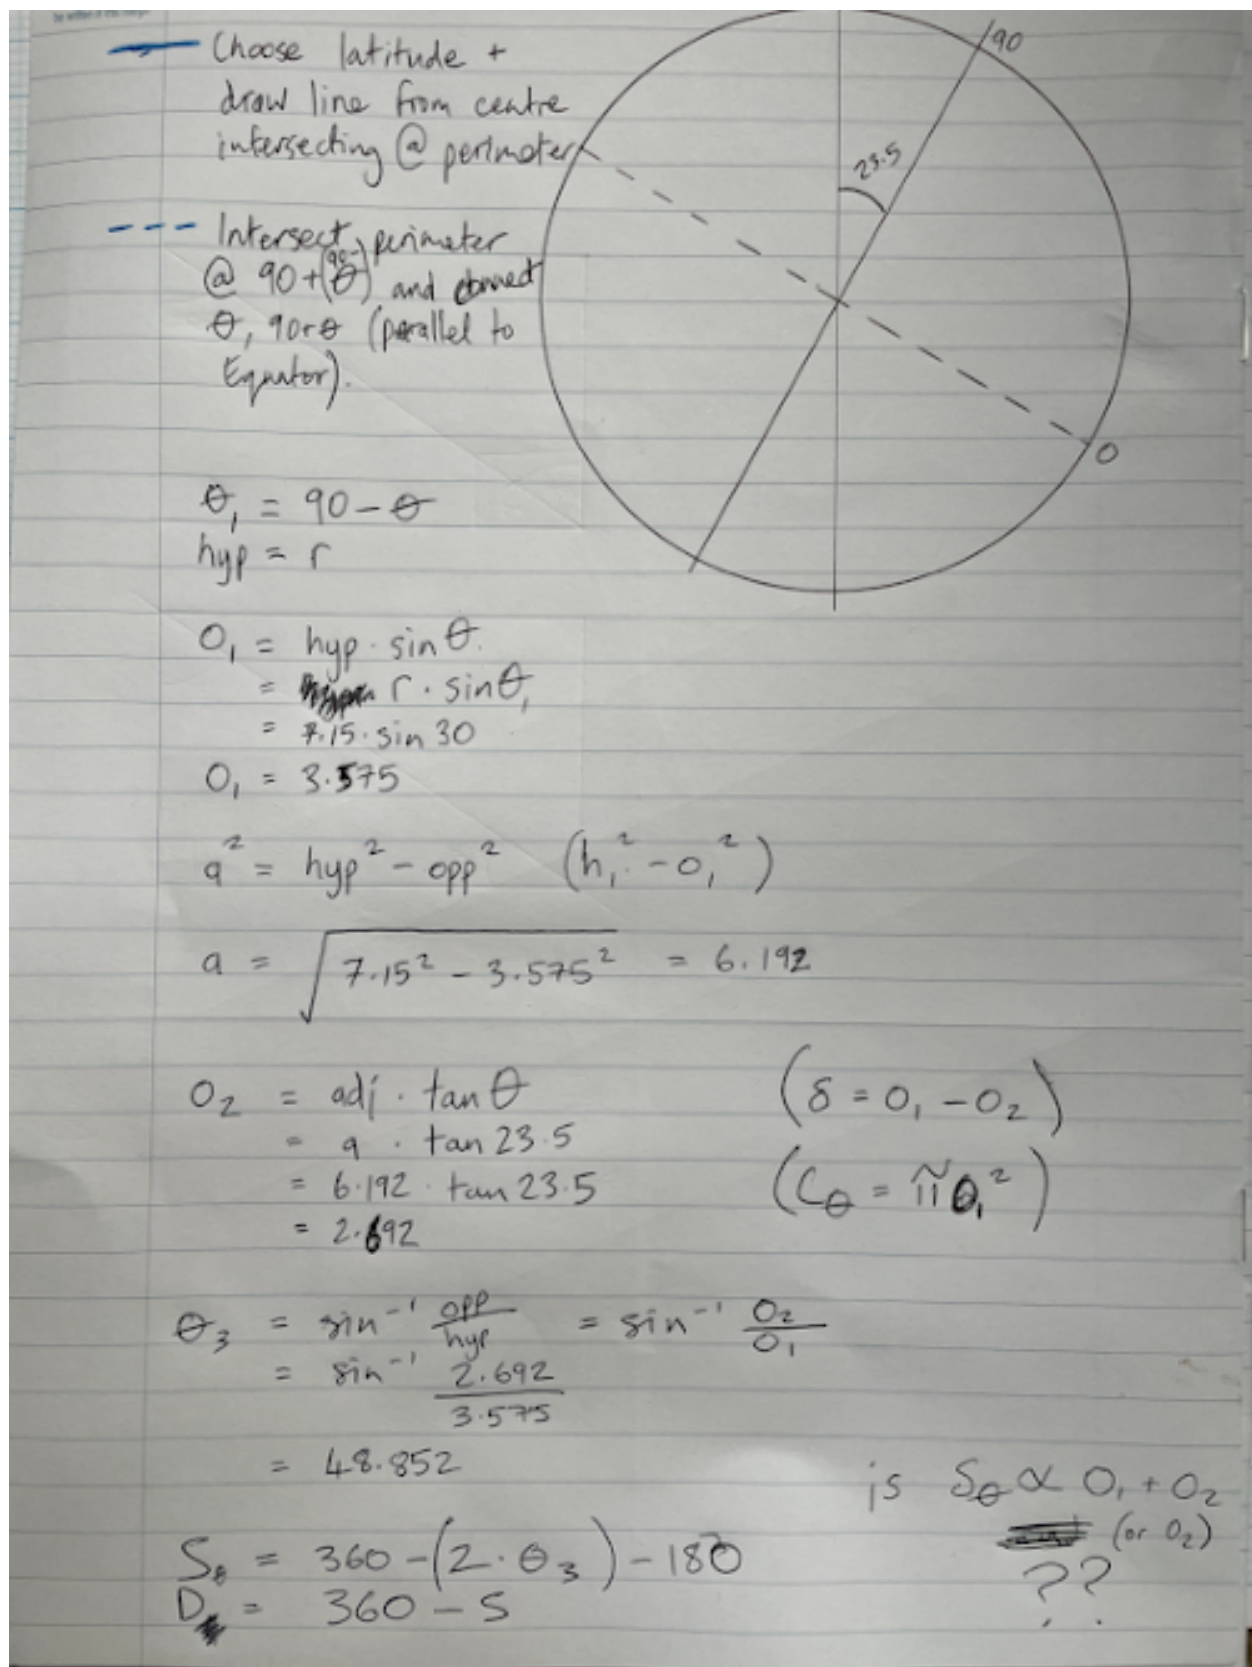 Choose latitude +
draw line from centre
intersecting @ perimeter
90
23.5
0
Intersect perimeter
@ 90+(90-θ) and connect
θ, 90+θ (parallel to
Equator).
θ₁ = 90 - θ
hyp = r
O₁ = hyp · sin θ.
= r · sin θ₁
= 7.15 · sin 30
O₁ = 3.575
a² = hyp² - opp² (h₁² - o₁²)
a = √7.15² - 3.575² = 6.192
O₂ = adj · tan θ (δ = O₁ - O₂)
= a . tan 23.5
= 6.192 · tan 23.5 (Cθ = π O₁²)
= 2.692
θ₃ = sin⁻¹ opp/hyp = sin⁻¹ O₂/O₁
= sin⁻¹ 2.692/3.575
= 48.852
is Sθ ∝ O₁ + O₂
(or O₂)
??
Sθ = 360 - (2 · θ₃) - 180
D = 360 - S